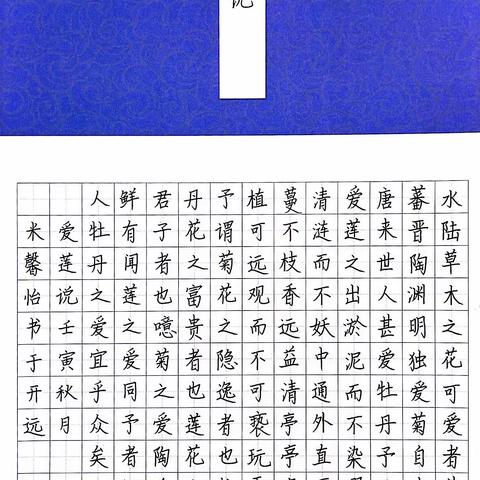 水陆草木之花可爱者
蕃晋陶渊明独爱菊自
唐来世人甚爱牡丹予
爱莲之出淤泥而不染
清涟而不妖中通外直
蔓不枝香远益清亭亭
植可远观而不可亵玩
予谓菊花之隐逸者也
丹花之富贵者也莲花
君子者也噫菊之爱陶
鲜有闻莲之爱同予者
人牡丹之爱宜乎众矣
爱莲说壬寅秋月
米馨怡书于开远